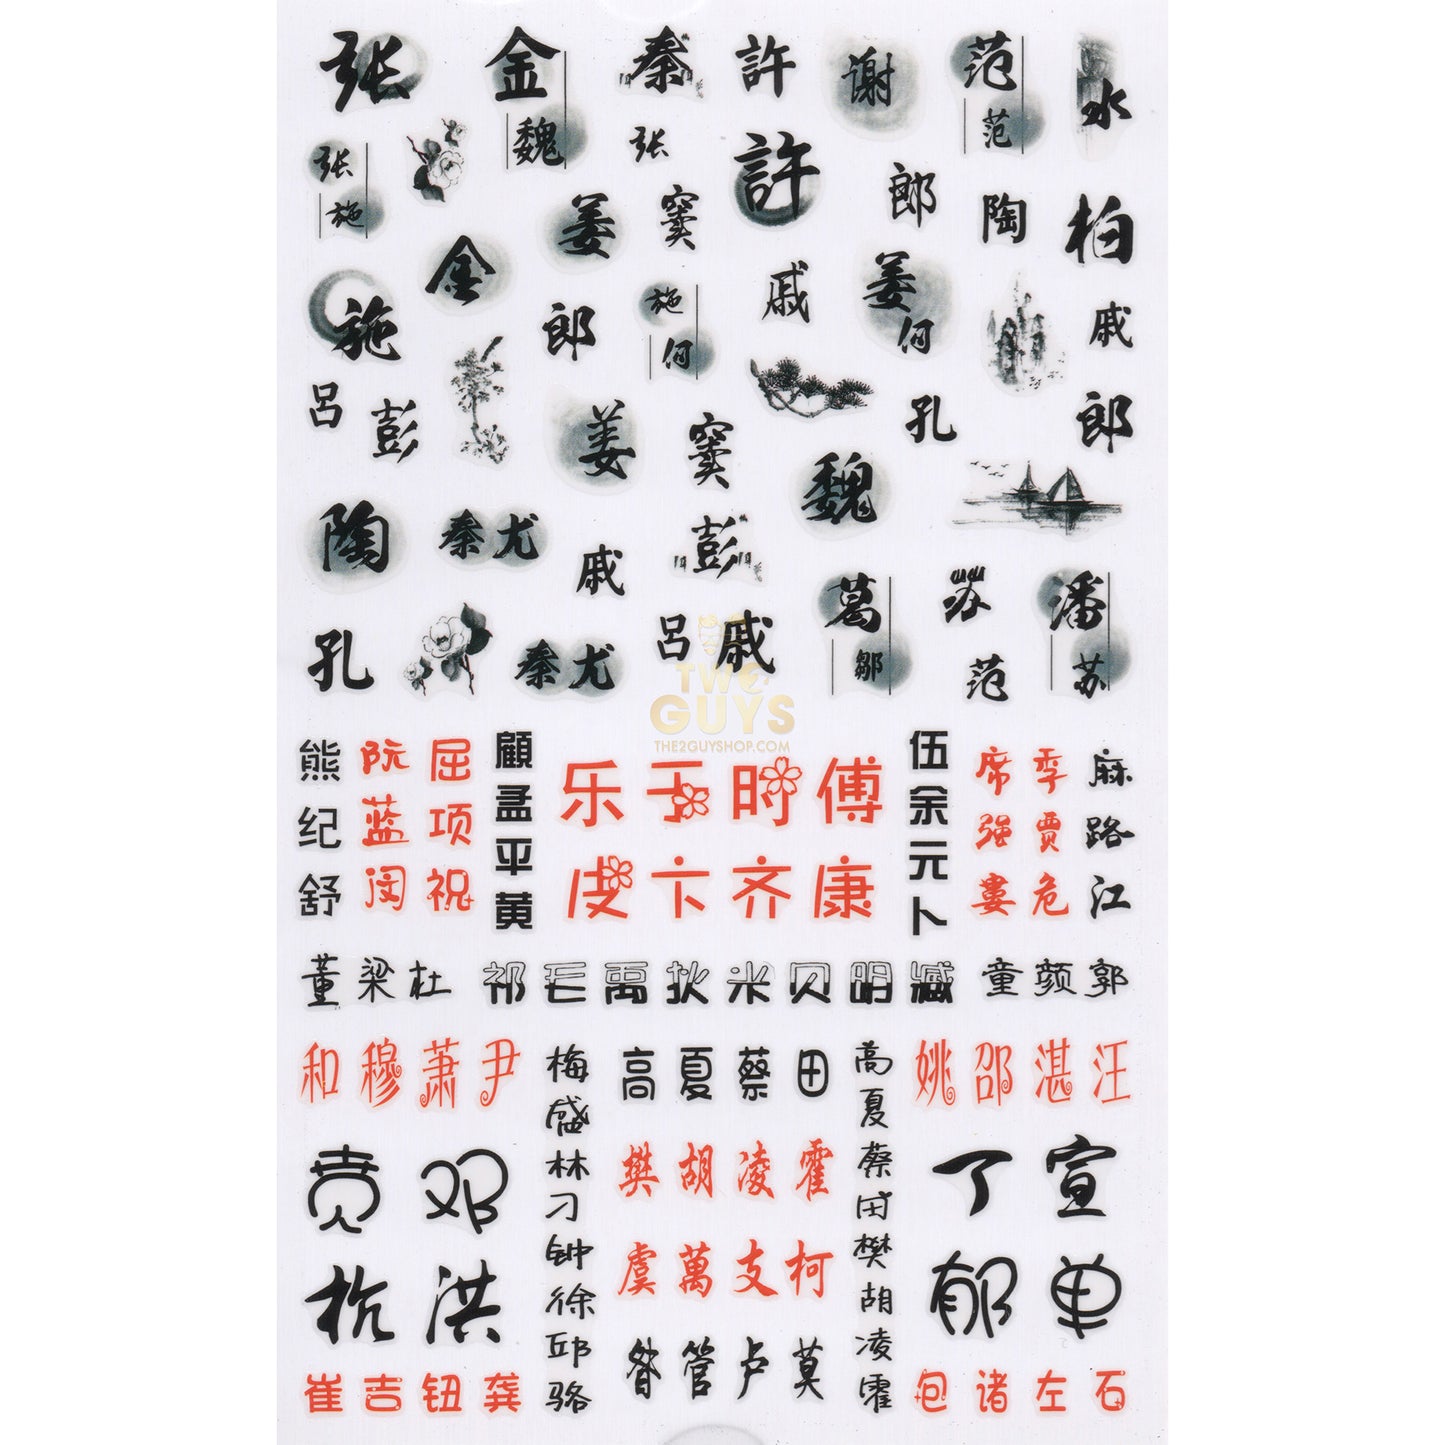 张 金 秦 許 谢 范 水
张 魏 张 許 范
施 姜 窦 郎 陶 柏
金 施 戚 姜 戚
施 郎 何 何
吕 彭 姜 窦 孔 郎
陶 秦 尤 戚 彭 魏
葛 苏 潘
孔 秦 尤 吕 戚 邹 范 苏
TWO
GUYS
THE2GUYSHOP.COM
熊 阮 屈 顧 乐 于 时 傅 伍 席 季 麻
纪 蓝 项 孟 余 强 贾 路
舒 闵 祝 平 皮 卞 齐 康 元 娄 危 江
黄 卜
董 梁 杜 祁 毛 禹 狄 米 贝 明 臧 童 颜 郭
和 穆 萧 尹 梅 高 夏 蔡 田 高 姚 邵 湛 汪
盛 夏
贲 邓 林 樊 胡 凌 霍 蔡 丁 宣
刁 田
杭 洪 钟 虞 萬 支 柯 樊 郁 单
徐 胡
邱 昝 管 卢 莫 凌
崔 吉 钮 龚 骆 霍 包 诸 左 石